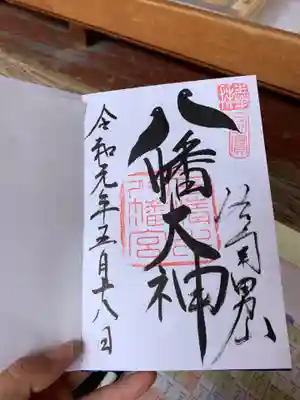 男山
八幡大神
八幡宮
令和元年五月十八日